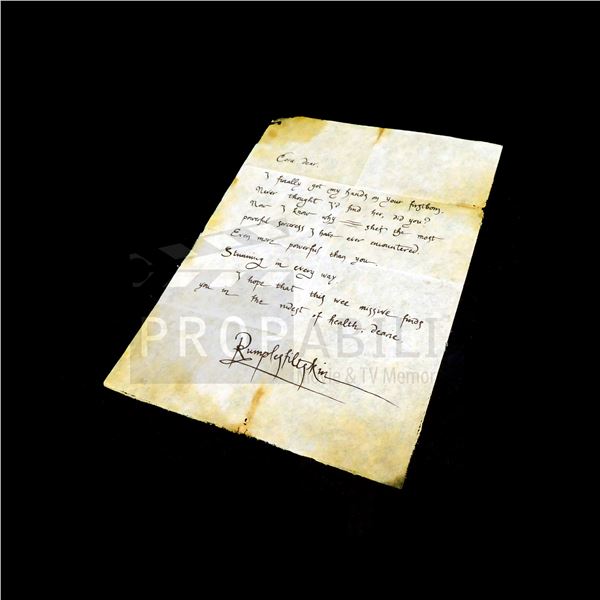 Cora dear,
I finally got my hands on your firstborn.
Never thought I'd find her, did you?
Now I know why she's the most
powerful sorceress I have ever encountered.
Even more powerful than you.
Stunning in every way.
I hope that this wee missive finds
you in the rudest of health, dearie.
Rumplestiltskin
PROPABILI
& TV Memor